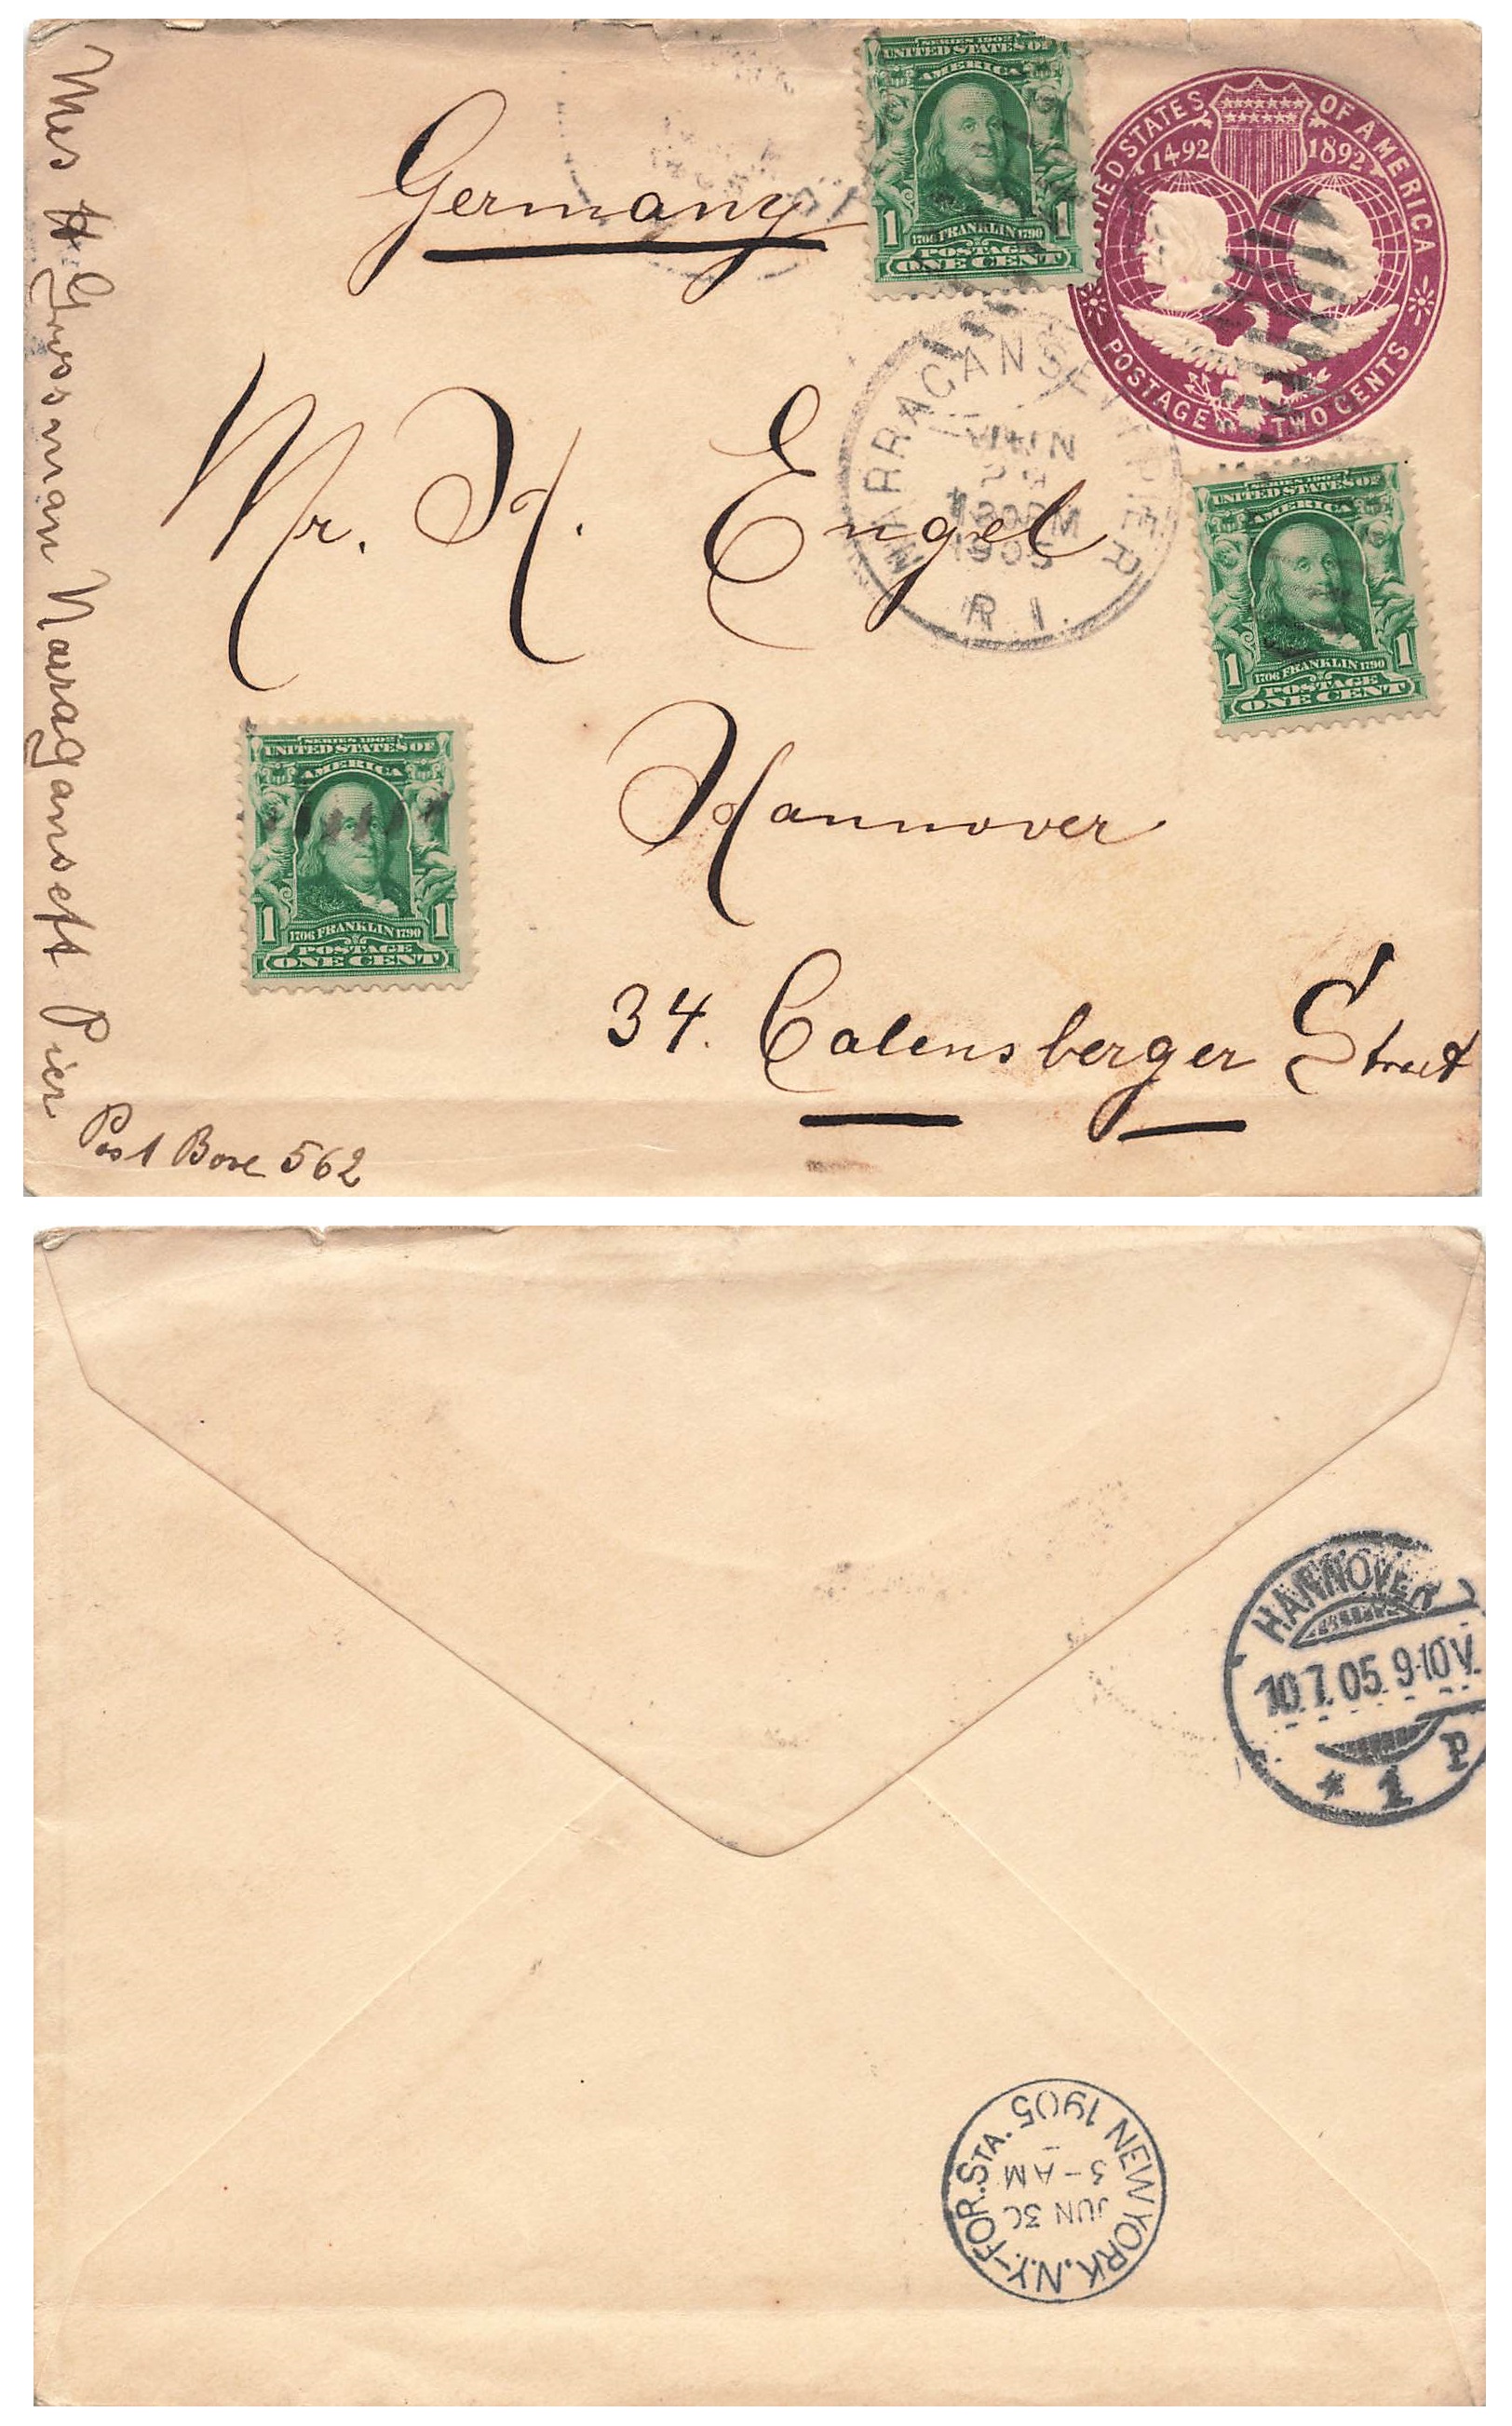 Mrs H Grossman Narragansett Pier
Post Boxe 562
Germany
Mr. H. Engel
Hannover
34. Calensberger Street
SERIES 1902
UNITED STATES OF
AMERICA
1 1
1706 FRANKLIN 1790
POSTAGE
ONE CENT
UNITED STATES OF AMERICA
1492 1892
POSTAGE TWO CENTS
NARRAGANSETT PIER
JUN
1905
R.I.
SERIES 1902
UNITED STATES OF
AMERICA
1 1
1706 FRANKLIN 1790
POSTAGE
ONE CENT
SERIES 1902
UNITED STATES OF
AMERICA
1 1
1706 FRANKLIN 1790
POSTAGE
ONE CENT
HANNOVER
10.7.05. 9-10V.
* 1 P
NEW YORK, N.Y.-FOR. STA. 1905
JUN 30
3-AM